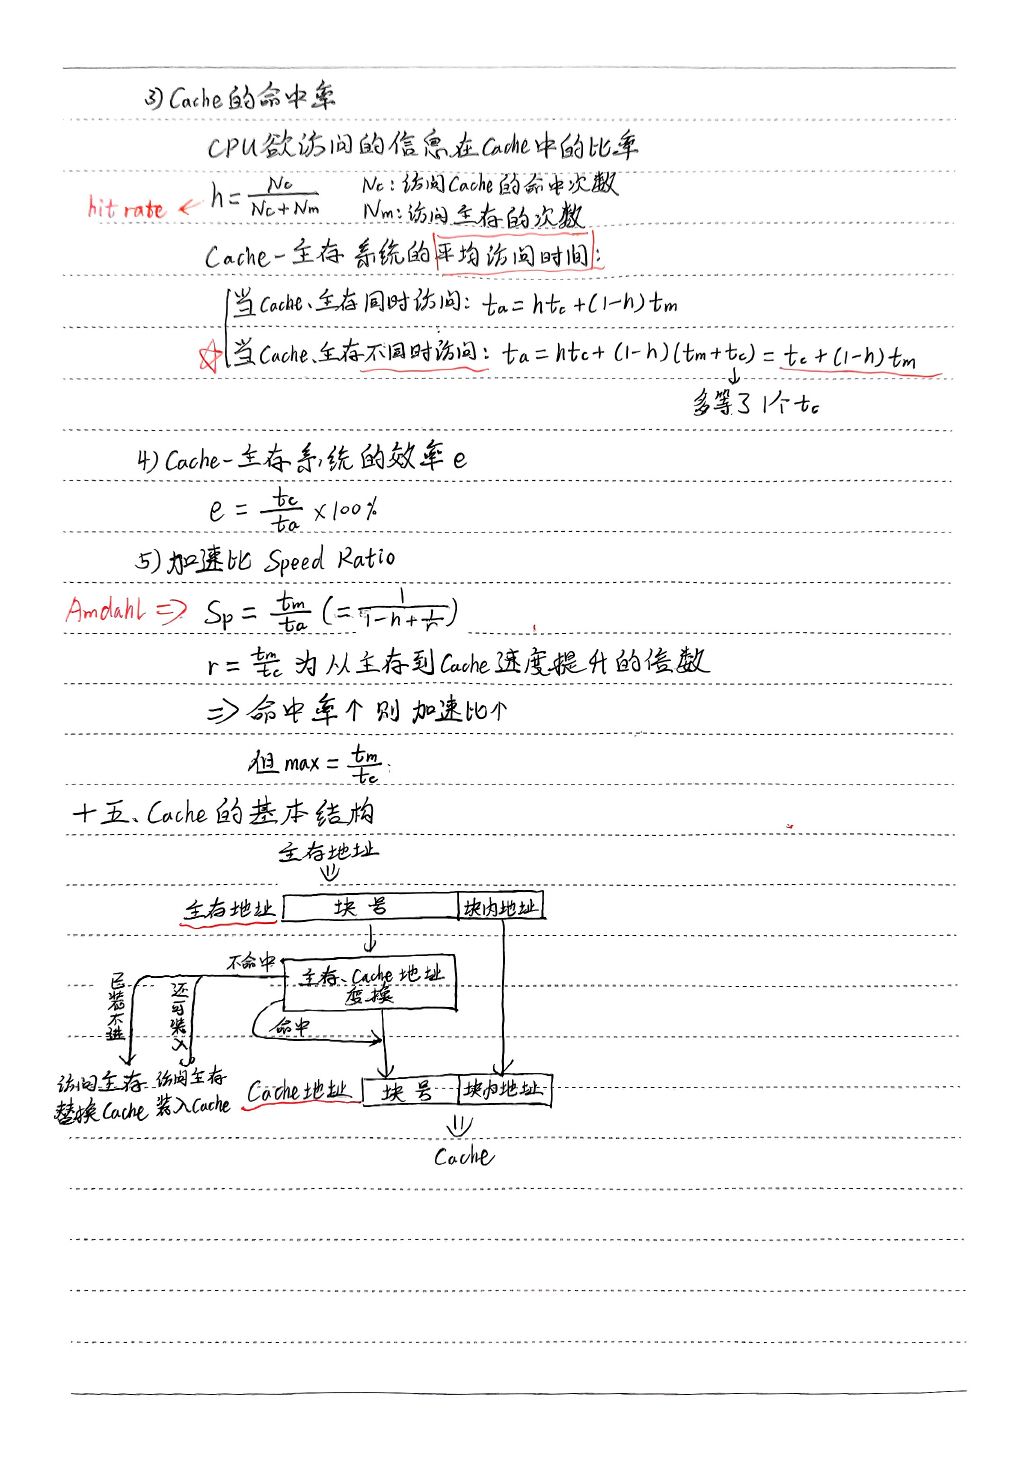 3) Cache的命中率
CPU欲访问的信息在Cache中的比率
hit rate ← h = Nc/(Nc+Nm) Nc: 访问Cache的命中次数
Nm: 访问主存的次数
Cache-主存系统的平均访问时间:
当Cache、主存同时访问: ta = htc + (1-h)tm
☆当Cache、主存不同时访问: ta = htc + (1-h)(tm+tc) = tc + (1-h)tm
↓
多等了1个tc
4) Cache-主存系统的效率e
e = tc/ta × 100%
5) 加速比 Speed Ratio
Amdahl ⇒ Sp = tm/ta (= 1/(1-h+h/r))
r = tm/tc 为从主存到Cache速度提升的倍数
⇒ 命中率↑则加速比↑
但max = tm/tc.
十五、Cache的基本结构
主存地址
主存地址 块号 块内地址
不命中
主存、Cache地址
变换
已装不进
还可装入
命中
访问主存 访问主存 Cache地址 块号 块内地址
替换Cache 装入Cache
Cache